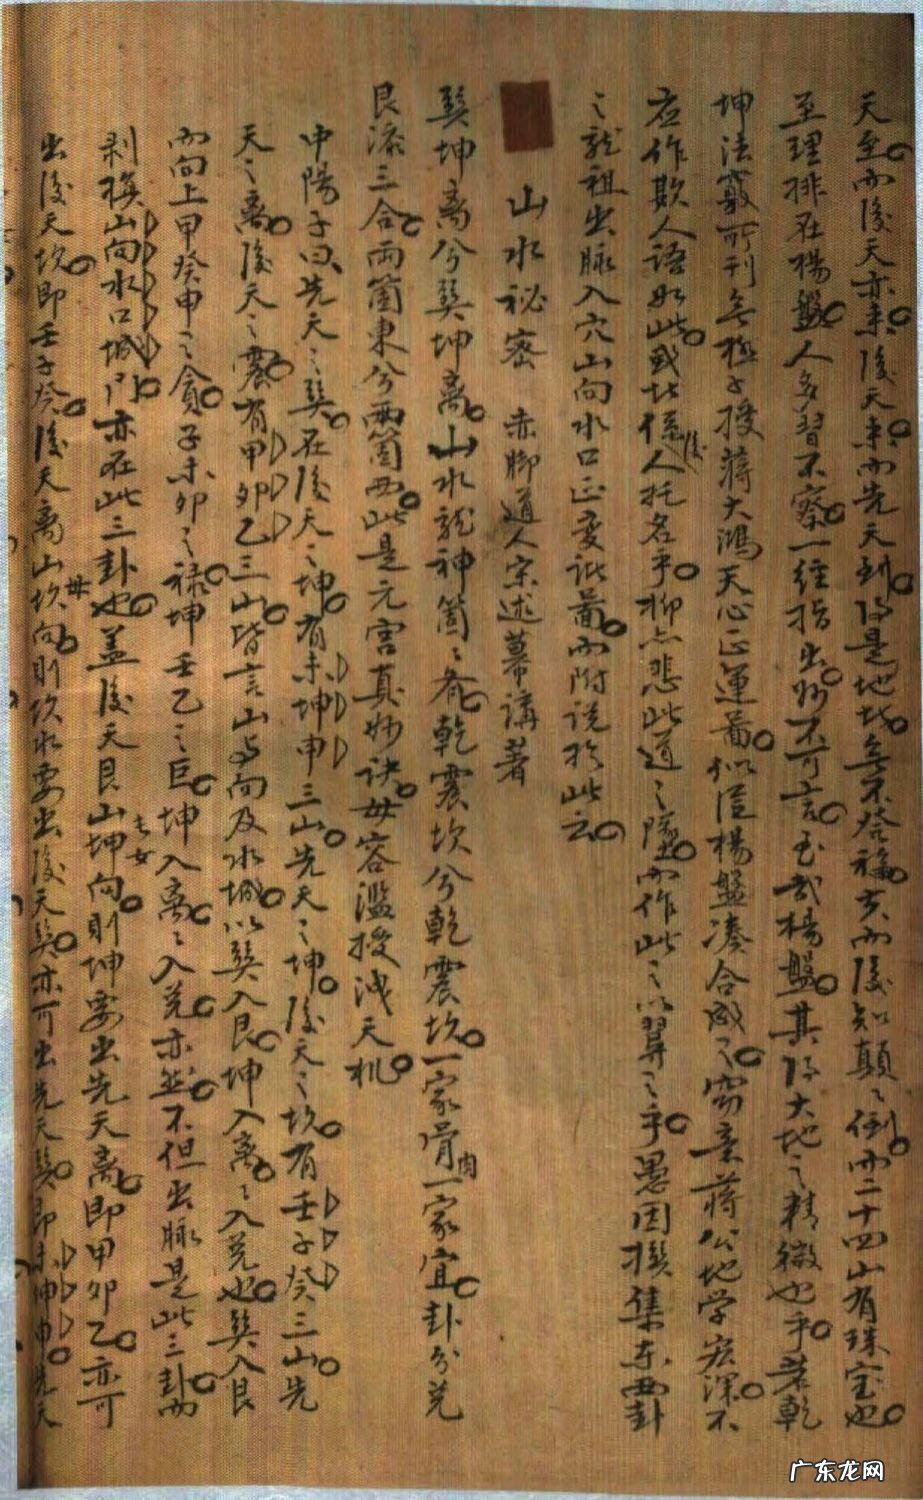 天至而後天亦來後天來而先天到得是地北無不發福玄而後知顛〻倒而二十四山有珠宝也
至理排在楊盤人多習不察一經指出妙不可言至哉楊盤其得大地之精微也乎若乾
坤法竅所刊無極子授蔣大鴻天心正運圖似從楊盤湊合成之窃意蔣公地学宏深不
應作欺人語如此或此係後人托名乎抑亦悲此道之墮而作此之以翼之乎愚因撰集東西卦
之龍祖出脉入穴山向水口正变訛圖而附说於此云
山水秘密 赤脚道人宗述幕講著
巽坤离兮巽坤离山水龍神箇〻齐乾震坎兮乾震坎一家骨肉一家宜卦分兑
艮添三合兩箇東兮兩箇西此是元宫真妙诀毋容濫授洩天机
中陽子曰先天之巽在後天之坤有未坤申三山先天之坤後天之坎有壬子癸三山先
天之离後天之震有甲卯乙三山皆言山与向及水城以巽入艮坤入离〻入兑也巽入艮
而向上甲癸申之貪子未卯之禄坤壬乙之巨坤入离〻入兑亦然不但出脉是此三卦而
剥換山向水口城门亦在此三卦也盖後天艮山坤向則坤要出先天离即甲卯乙亦可
出後天坎即壬子癸後天离山坎向則坎水要出後天巽亦可出先天巽即未坤申先天
母
長女
广东龙网